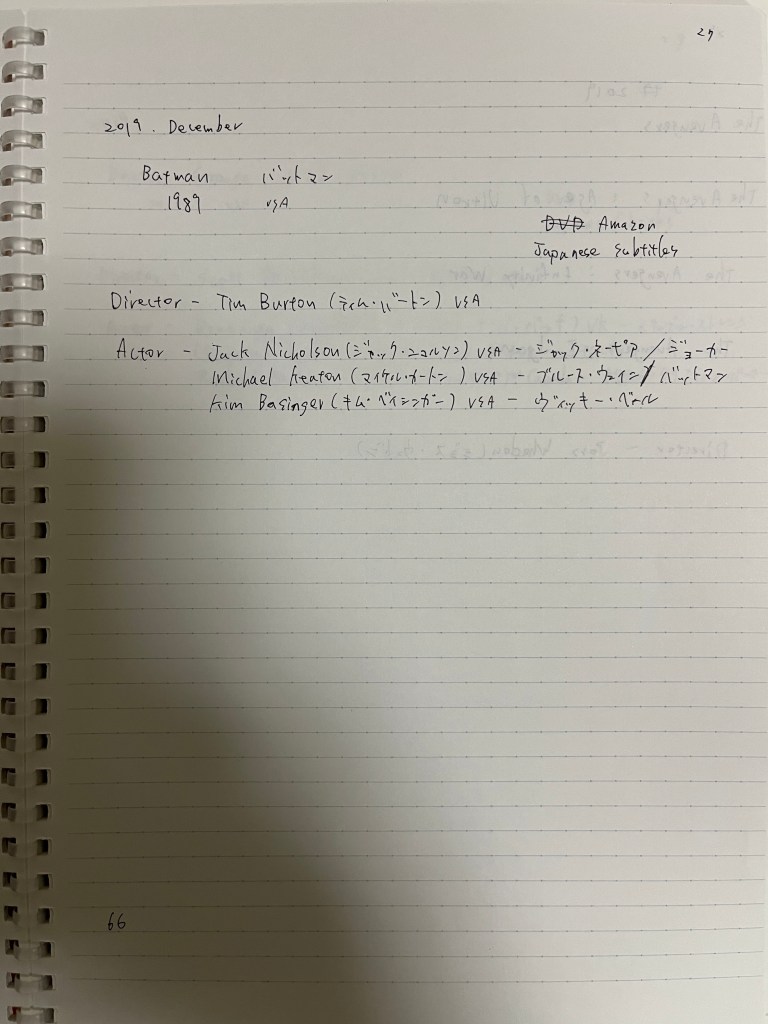 27
2019. December
Batman バットマン
1989 USA
DVD Amazon
Japanese subtitles
Director - Tim Burton (ティム・バートン) USA
Actor - Jack Nicholson (ジャック・ニコルソン) USA - ジャック・ネーピア / ジョーカー
Michael Keaton (マイケル・キートン) USA - ブルース・ウェイン / バットマン
Kim Basinger (キム・ベイシンガー) USA - ヴィッキー・ベール
66